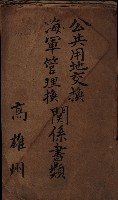 公共用地交換
海軍管理換
關係書類
高雄州